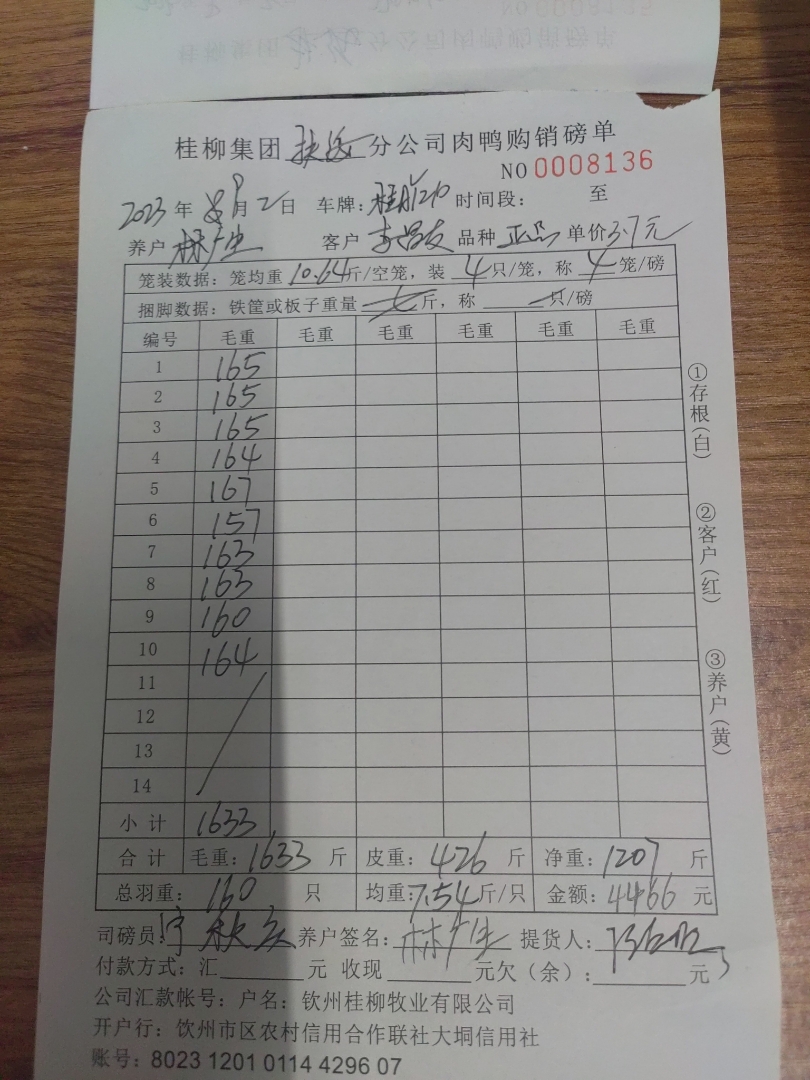 桂柳集团 分公司肉鸭购销磅单
NO 0008136
2023 年 8月 2日 车牌: 时间段: 至
养户 林广生 客户 李昌友 品种 正品 单价3.7元
笼装数据：笼均重 10.64斤/空笼，装 4 只/笼，称 4 笼/磅
捆脚数据：铁筐或板子重量 斤，称 只/磅
编号 毛重 毛重 毛重 毛重 毛重 毛重
1 165
2 165
3 165
4 164
5 167
6 157
7 163
8 163
9 160
10 164
11
12
13
14
小计 1633
合计 毛重：1633 斤 皮重：426 斤 净重：1207 斤
总羽重： 160 只 均重：7.54斤/只 金额：4466 元
司磅员： 养户签名：林广生 提货人：
付款方式：汇 元 收现 元欠（余）： 元
公司汇款帐号：户名：钦州桂柳牧业有限公司
开户行：饮州市区农村信用合作联社大垌信用社
账号：8023 1201 0114 4296 07
①存根(白)
②客户(红)
③养户(黄)